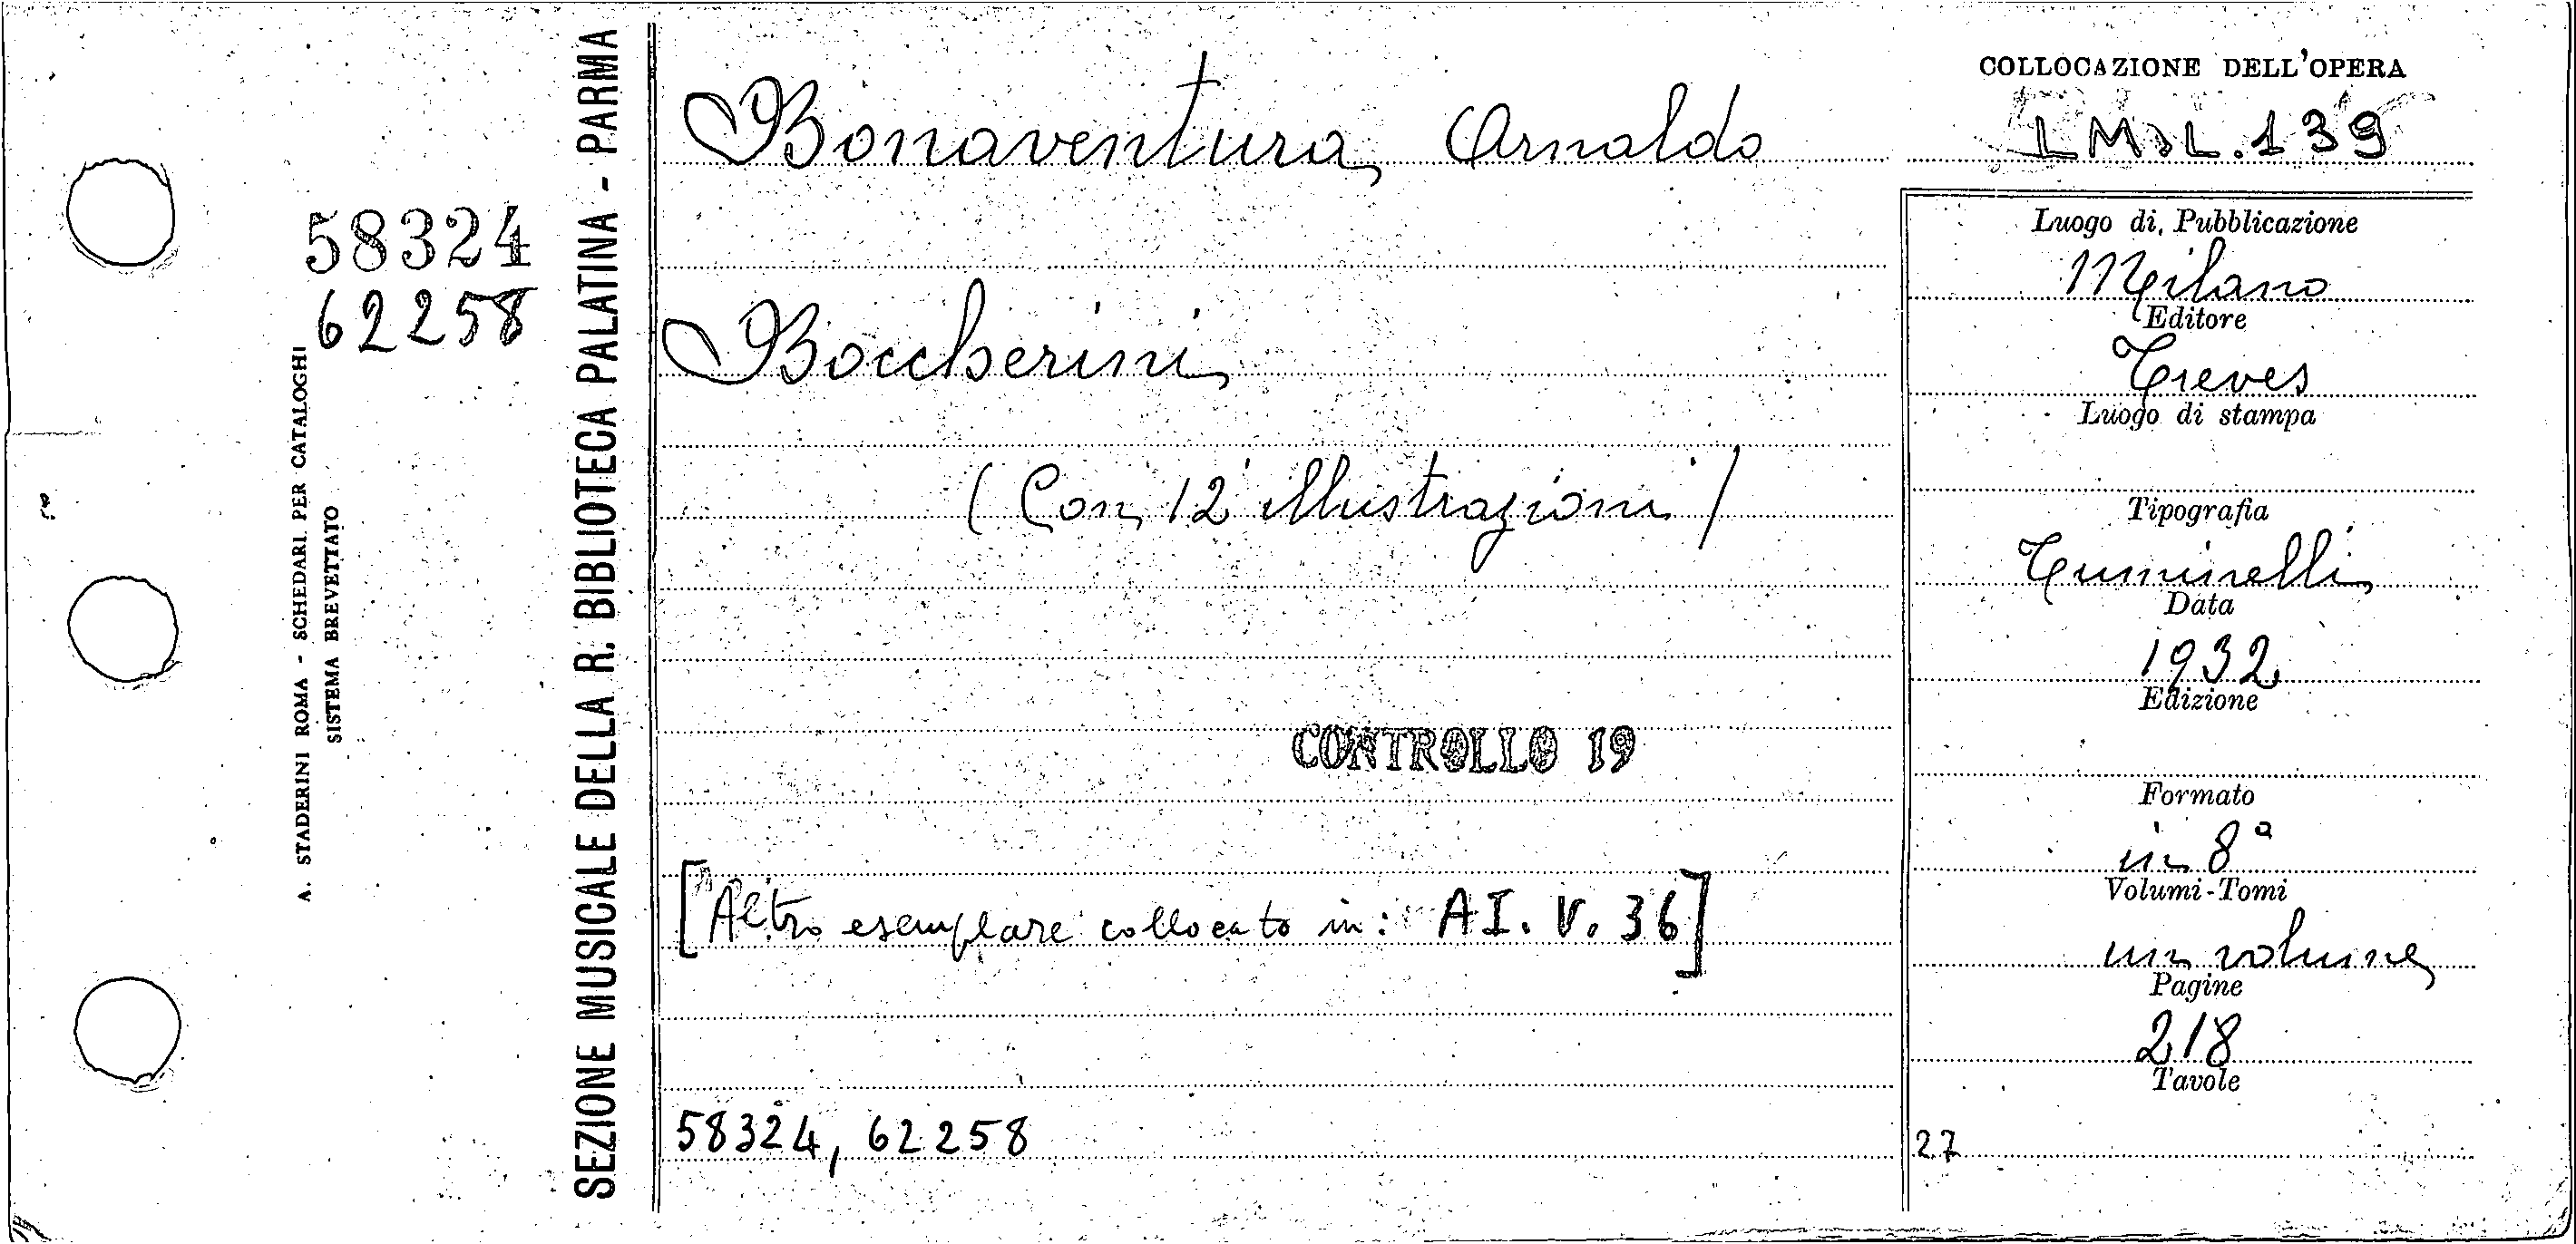 58324
62258
A. STADERINI ROMA - SCHEDARI PER CATALOGHI
SISTEMA BREVETTATO
SEZIONE MUSICALE DELLA R. BIBLIOTECA PALATINA - PARMA
Bonaventura Arnaldo
Boccherini
(Con 12 illustrazioni)
CONTROLLO 19
[Altro esemplare collocato in: AI. V. 36]
58324, 62258
COLLOCAZIONE DELL'OPERA
139
Luogo di Pubblicazione
Milano
Editore
Treves
Luogo di stampa
Tipografia
Tuminelli
Data
1932
Edizione
Formato
in 8ª
Volumi-Tomi
un volume
Pagine
218
Tavole
27